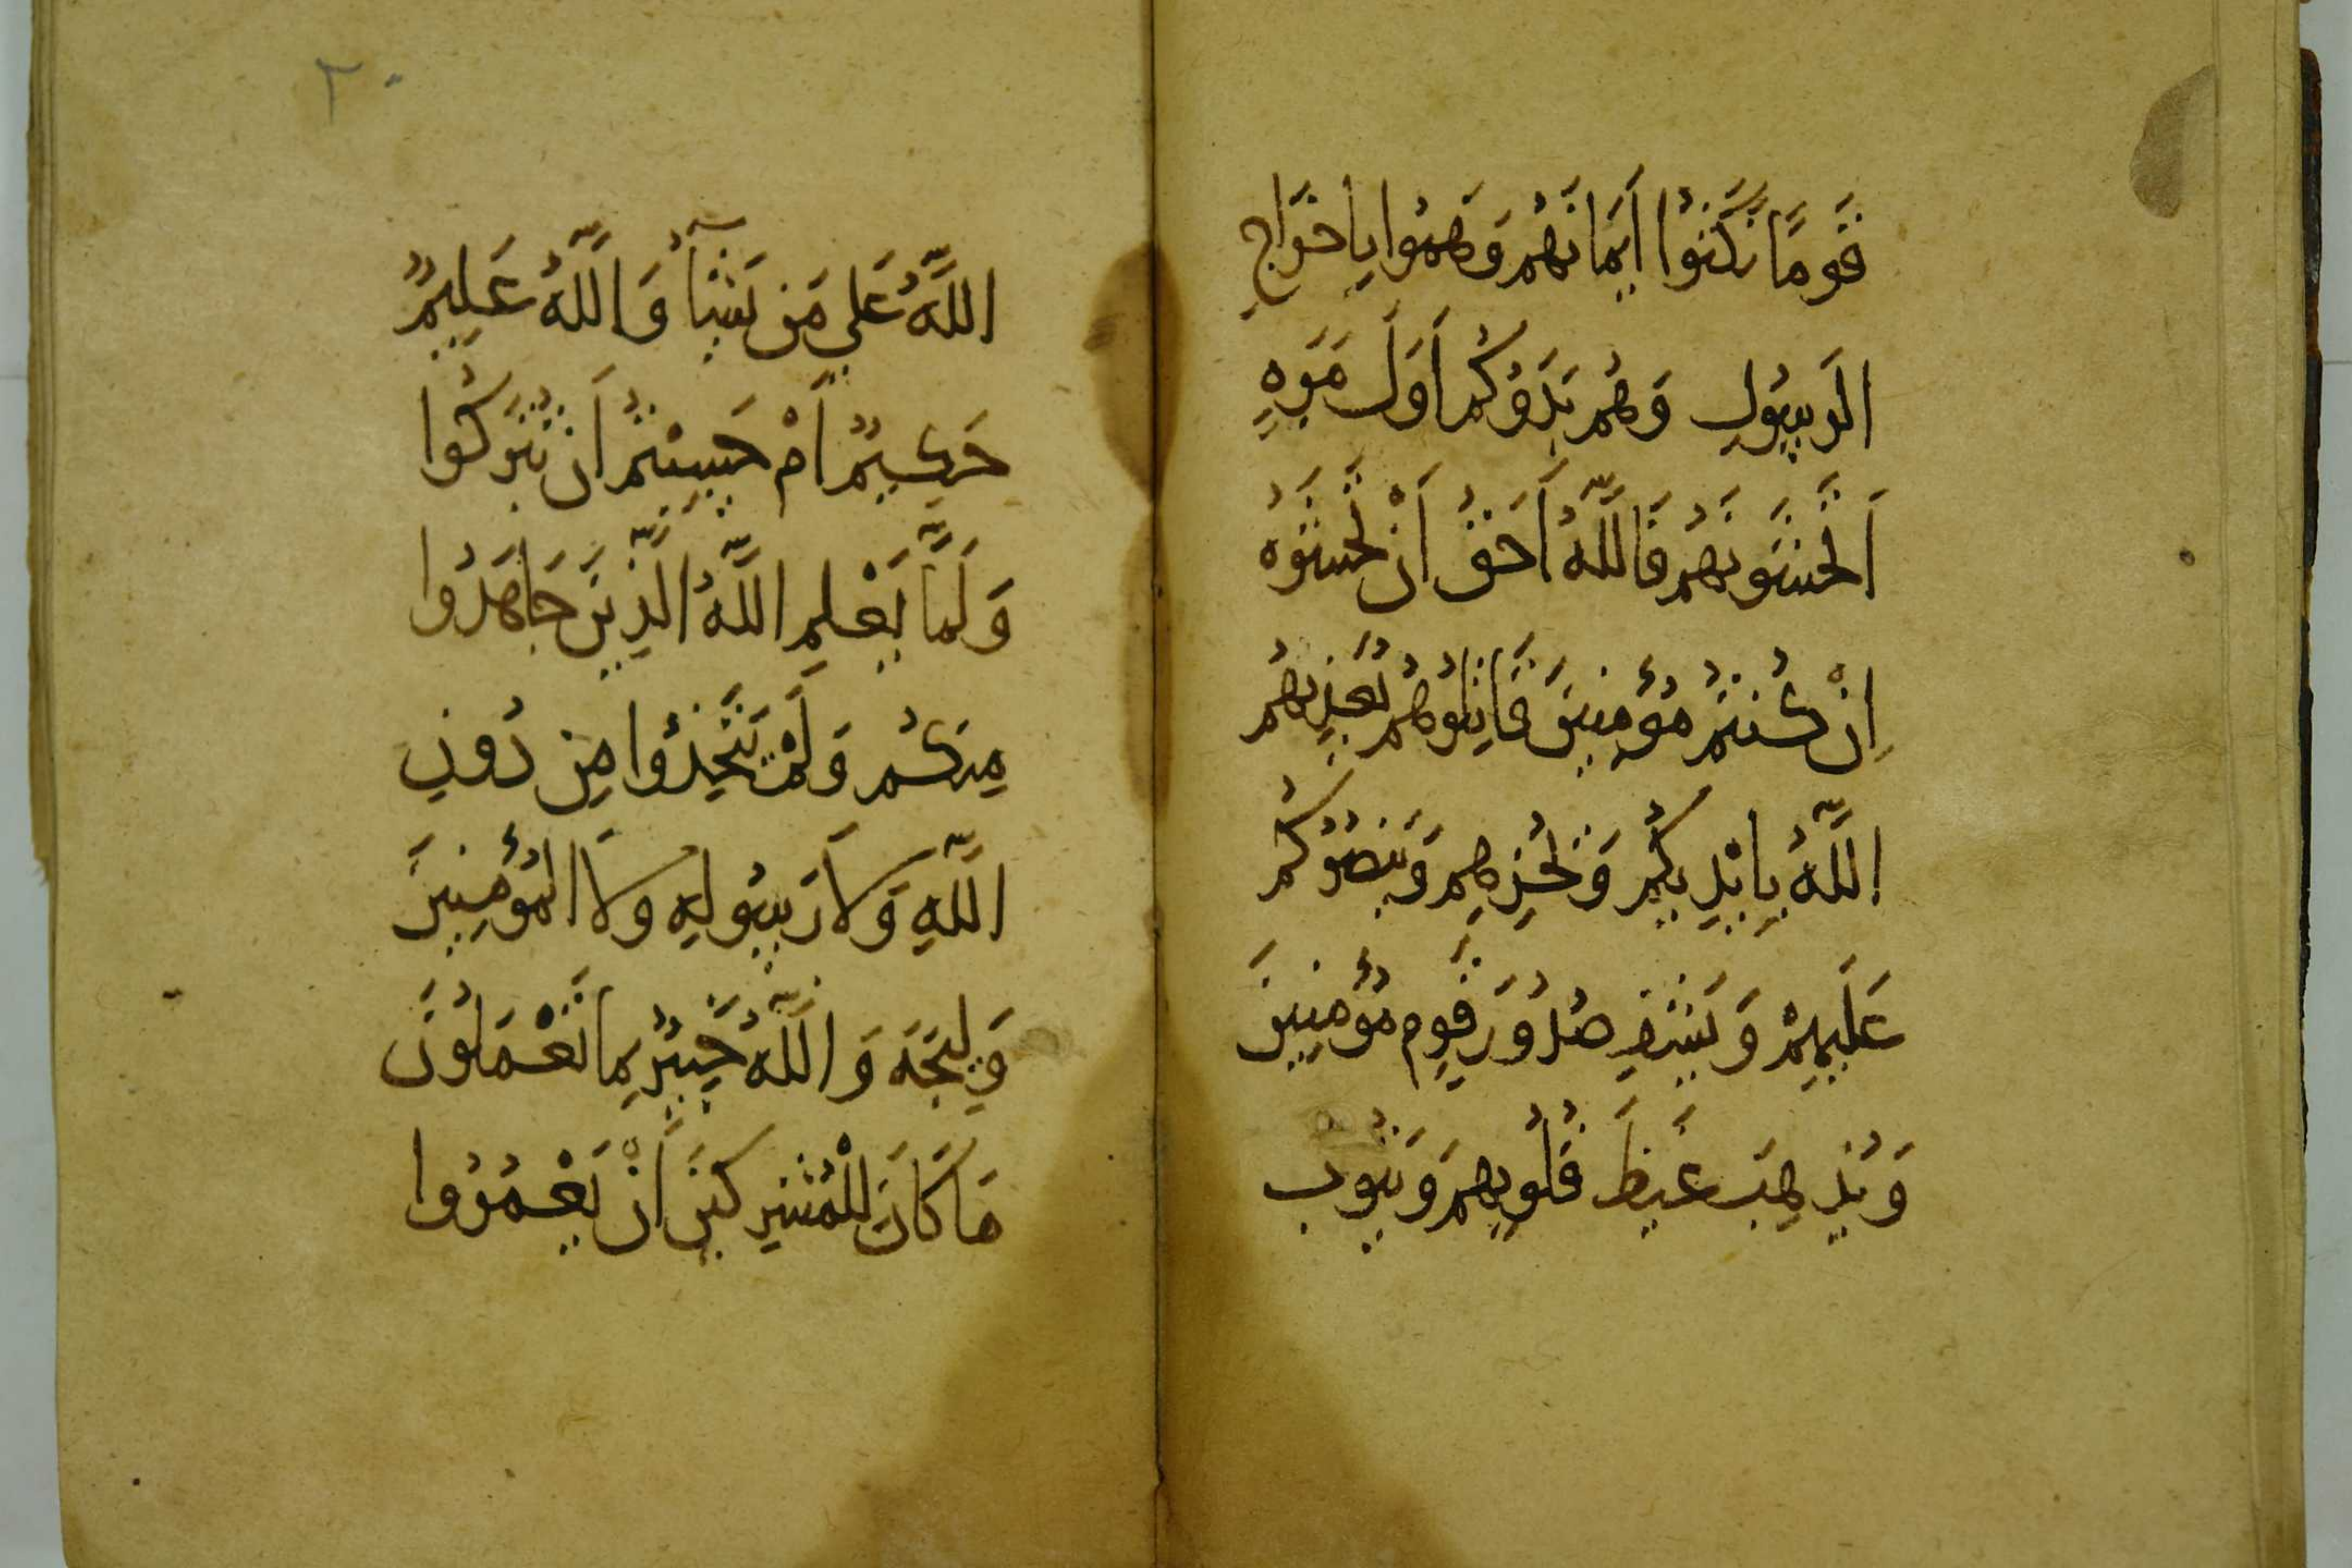 قَومًا نَكَثُوا اَيمَانَهُم وَهَمُّوا بِاخرَاجِ
الرَسُولِ وَهُم بَدَؤُكُم اَوَلَ مَرَةٍ
اَتَخشَونَهُم فَاللَّهُ اَحَقُ اَنْ تَخشَوهُ
اِنْ كُنتُم مُؤمِنِينَ قَاتِلُوهُم يُعَذِبهُم
اللَّهُ بِاَيْدِيكُم وَيُخزِهِم وَيَنصُركُم
عَلَيهِمْ وَيَشفِ صُدُورَ قَومٍ مُؤمِنِينَ
وَيُذهِبَ غَيظَ قُلُوبِهِم وَيَتُوبُ
٢٠
اللَّهُ عَلي مَن يَشَآءُ وَاللَّهُ عَلِيمٌ
حَكِيمٌ اَمْ حَسِبْتُم اَن تُترَكُوا
وَلَمَّا يَعْلَمِ اللَّهُ الَّذِينَ جَاهَدُوا
مِنكُم وَلَمْ يَتَّخِذُوا مِن دُونِ
اللَّهِ وَلَا رَسُولِهِ وَلَا المُؤمِنِينَ
وَلِيجَةَ وَاللَّهُ خَبِيرٌ بِمَا تَعْمَلُونَ
مَا كَانَ لِلْمُشرِكِينَ اَنْ يَعْمُرُوا